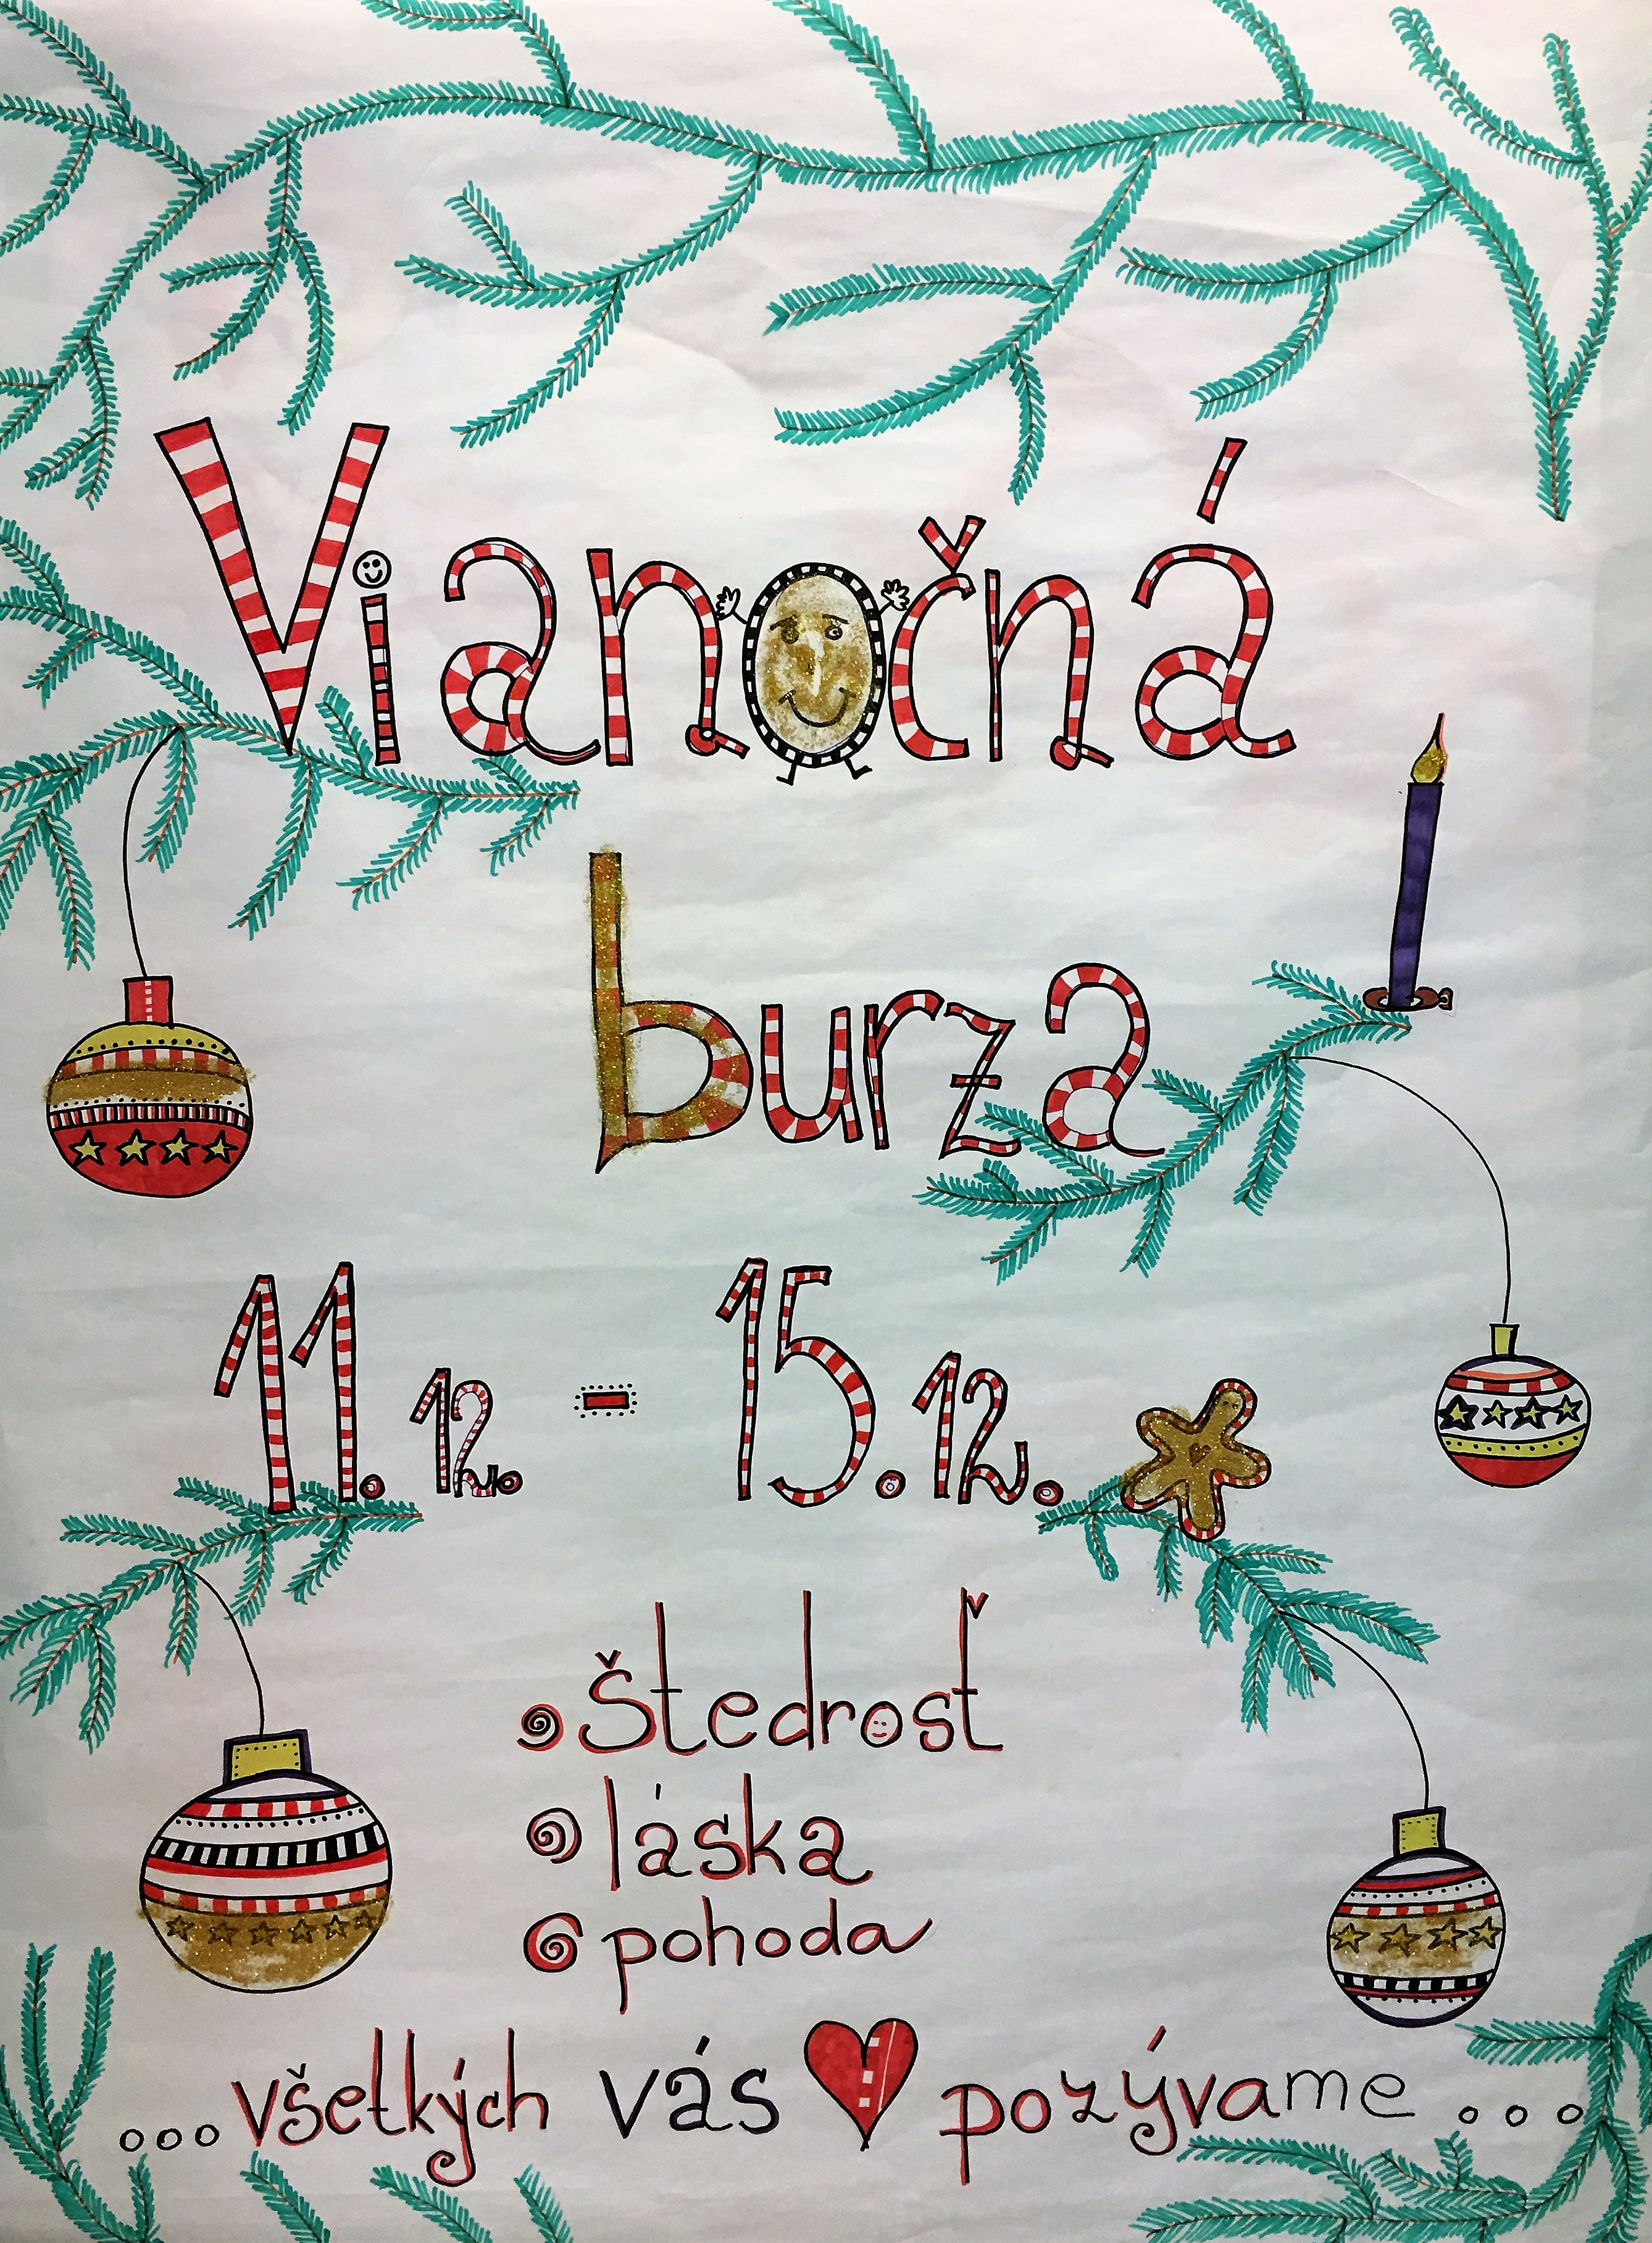 Vianočná
burza
11.12. - 15.12.
Štedrosť
láska
pohoda
...všetkých vás pozývame...